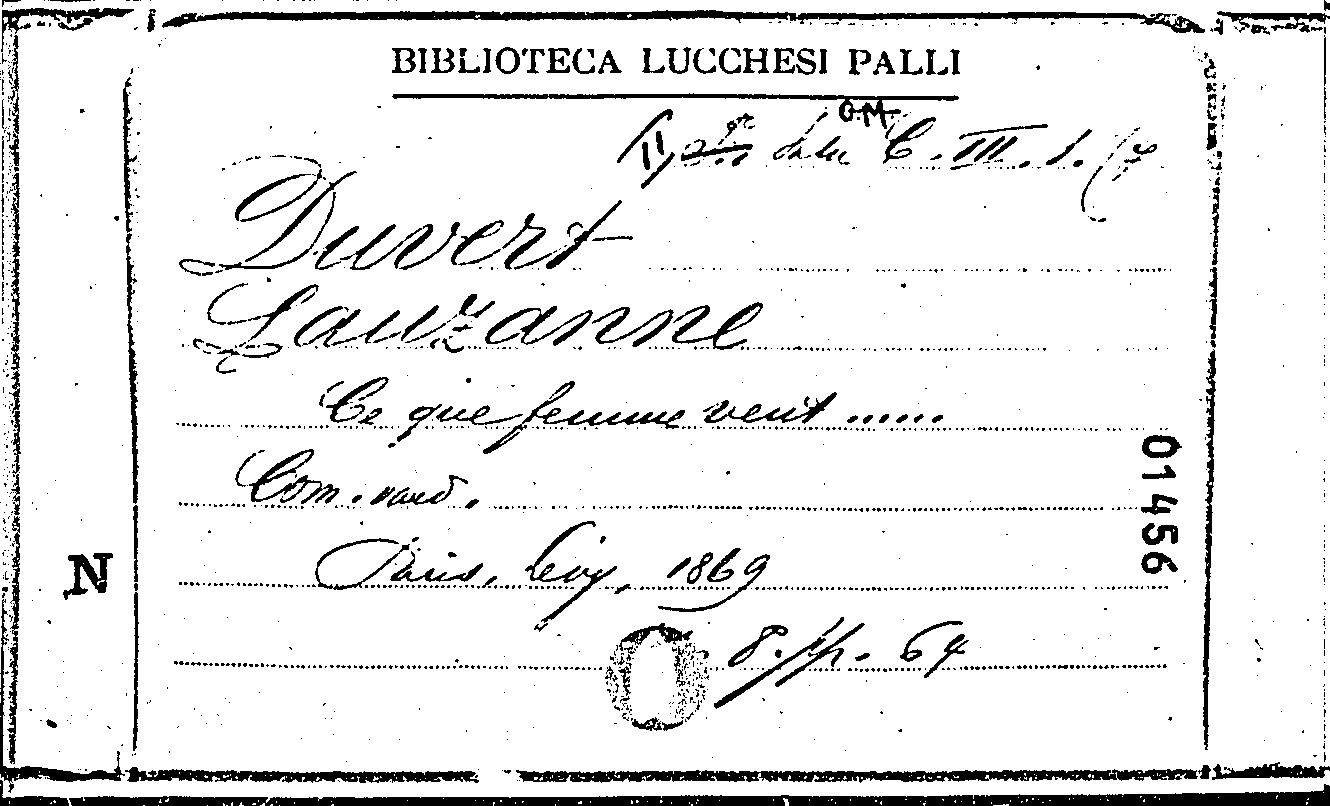 BIBLIOTECA LUCCHESI PALLI
O.M.
C. III. 1. (7
Duvert
Lauzanne
Ce que femme veut ......
Com. vaud.
01456
N
Paris, Lévy, 1869
8. pp. 64